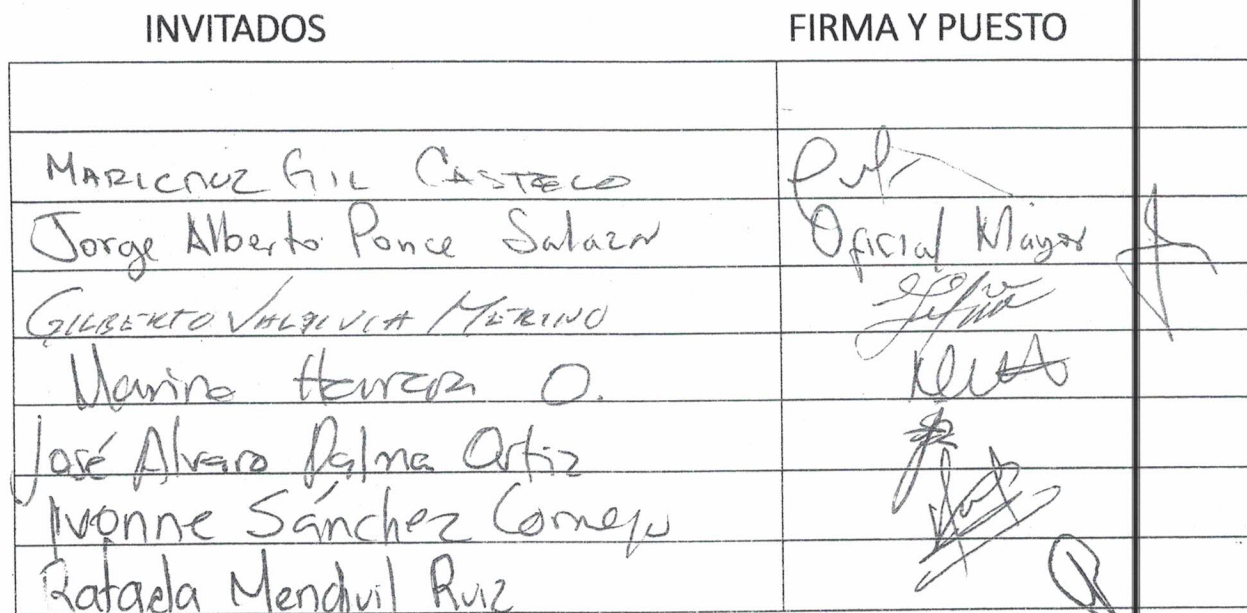 INVITADOS FIRMA Y PUESTO
MARICRUZ GIL CASTELO
Jorge Alberto Ponce Salazar Oficial Mayor
GILBERTO VALDIVIA MERINO
Marina Herrera O.
José Alvaro Palma Ortiz
Ivonne Sánchez Cornejo
Rafaela Mendivil Ruiz